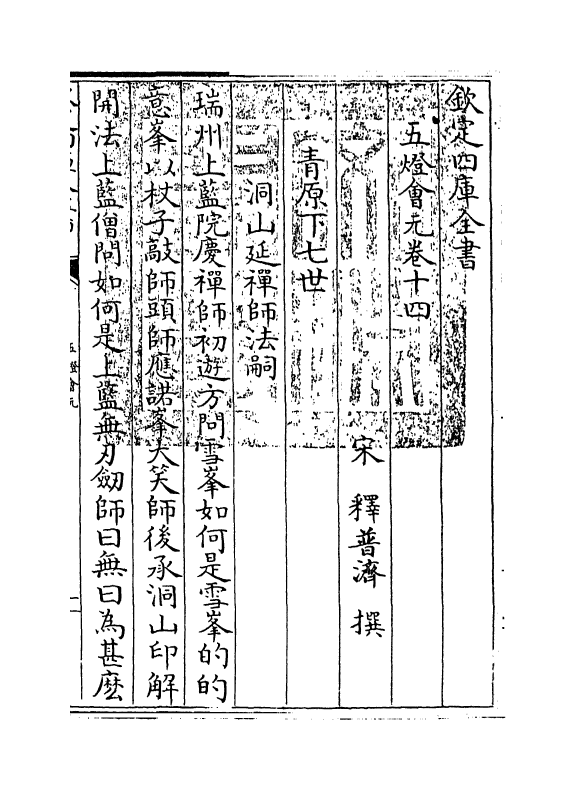 欽定四庫全書
五燈會元卷十四
宋 釋普濟 撰
青原下七世
洞山延禪師法嗣
瑞州上藍院慶禪師初遊方問雪峯如何是雪峯的的
意峯以杖子敲師頭師應諾峯大笑師後承洞山印解
開法上藍僧問如何是上藍無刃劒師曰無曰為甚麽
五燈會元